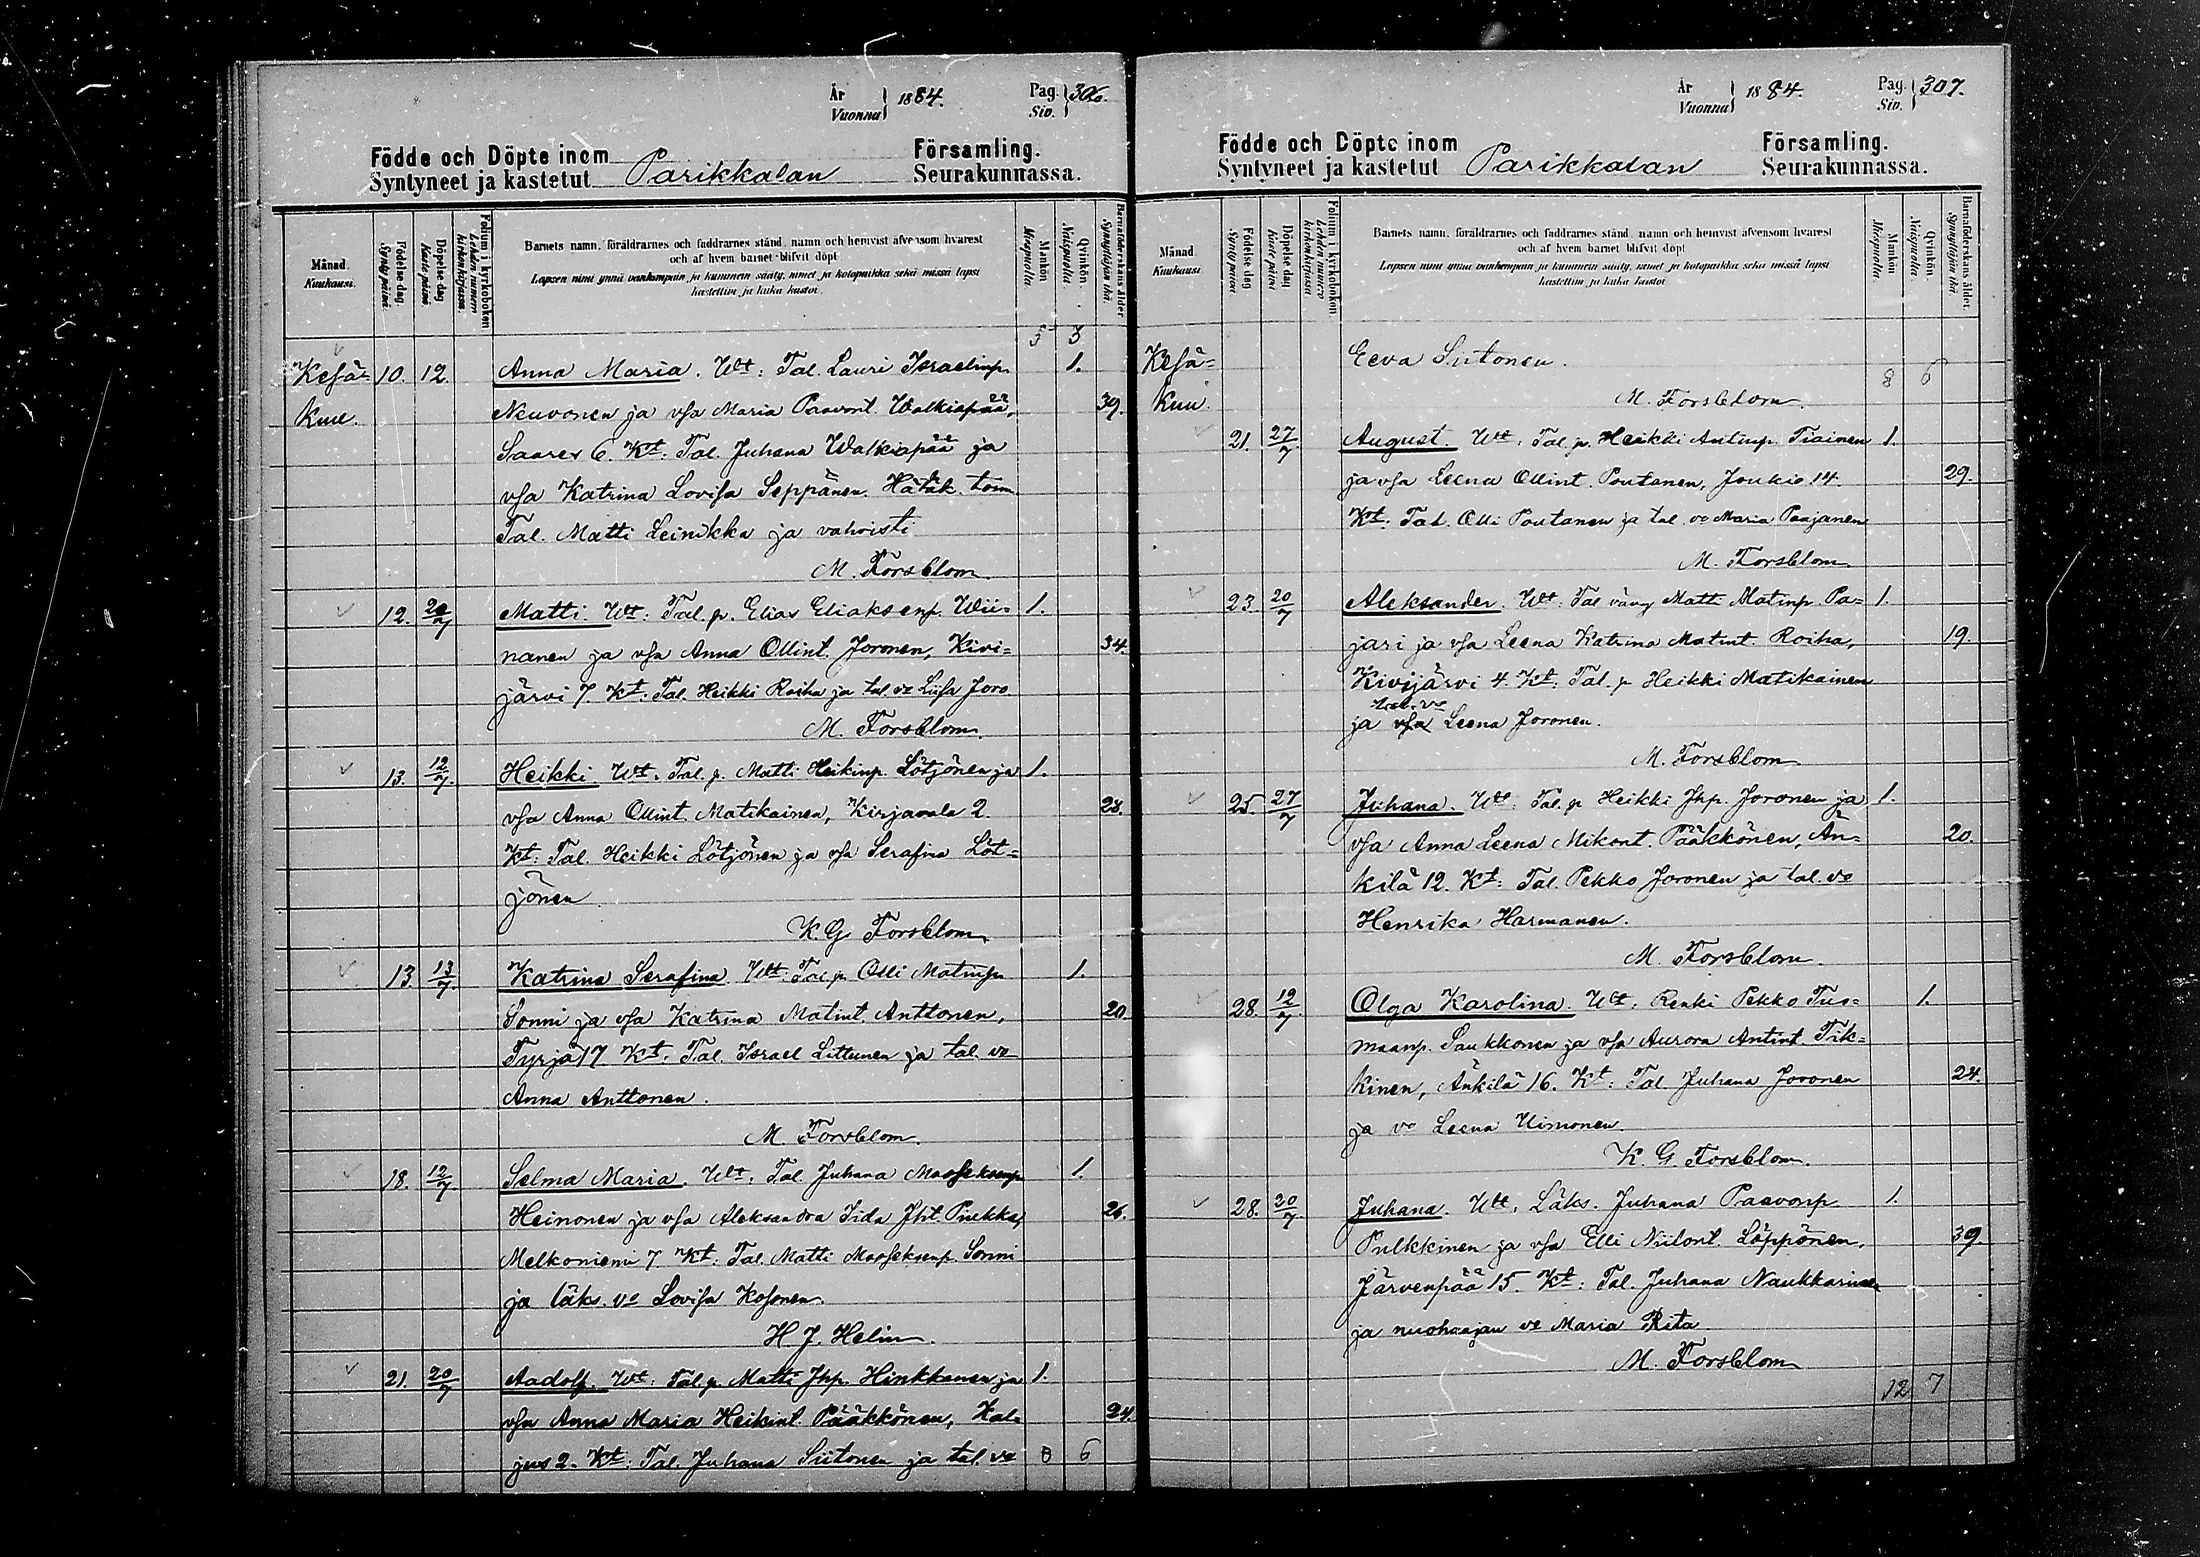 År Vuonna } 1884. Pag. Siv. } 306.
Födde och Döpte inom Församling.
Syntyneet ja kastetut Parikkalan Seurakunnassa.
Månad. Kuukausi.
Födelse dag. Synty päivä.
Döpelse dag Kaste päivä
Folium i kyrkoboken Lehden numero kirkonkirjassa.
Barnets namn, föräldrarnes och faddrarnes stånd, namn och hemvist äfvensom hvarest
och af hvem barnet blifvit döpt
Lapsen nimi ynnä vanhempain ja kummein sääty, nimet ja kotopaikka sekä missä lapsi
kastettiin ja kuka kastoi.
Mankön Miespuolia.
Qvinkön Naispuolia
Barnaföderskans ålder Synnyttäjän ikä.
5 3
Kesä= 10. 12. Anna Maria. Wt: Tal. Lauri Israelinp. 1.
Kuu. Neuvonen ja vsa Maria Paavont. Walkiapää, 39.
Saares 6. Kt: Tal. Juhana Walkiapää ja
vsa Katrina Lovisa Seppänen. Hätäk. toim
Tal. Matti Leinikka ja vahvisti
M. Forsblom.
12. 20/7 Matti. Wt: Tal. p. Elias Eliaksenp. Wii= 1.
nanen ja vsa Anna Ollint. Joronen, Kivi= 34.
järvi 7. Kt: Tal. Heikki Roiha ja tal. vo Liisa Joro
M. Forsblom.
13. 12/7. Heikki Wt. Tal. p. Matti Heikinp. Lötjönen ja 1.
vsa Anna Ollint. Matikainen, Kirjavala 2. 23.
Kt: Tal. Heikki Lötjönen ja vsa Serafina Löt=
jönen
K. G. Forsblom.
13. 13/7 Katrina Serafina. Wt: Tal p. Olli Matinp. 1.
Sonni ja vsa Katrina Matint. Anttonen, 20.
Tyrjä 17. Kt: Tal. Israel Littunen ja tal. vo
Anna Anttonen.
M. Forsblom.
18. 12/7. Selma Maria. Wt: Tal. Juhana Mooseksenp 1.
Heinonen ja vsa Aleksandra Iida Jht. Pirkka, 26.
Melkoniemi 7. Kt: Tal. Matti Mooseksenp. Sonni
ja läks. vo Lovisa Kosonen.
H J. Helin.
21. 20/7 Aadolf. Wt: Tal. p. Matti Jhp. Hinkkanen ja 1.
vsa Anna Maria Heikint. Pääkkönen, Kal= 24
jus 2. Kt: Tal. Juhana Siitonen ja tal. vo 8 6
År Vuonna } 1884. Pag. Siv. } 307.
Födde och Döpte inom Församling.
Syntyneet ja kastetut Parikkalan Seurakunnassa.
Månad Kuukausi.
Födelse dag Synty päivä.
Döpelse dag Kaste päivä
Folium i kyrkoboken Lehden numero kirkonkirjassa
Barnets namn, föräldrarnes och faddrarnes stånd, namn och hemvist äfvensom hvarest
och af hvem barnet blifvit döpt
Lapsen nimi ynnä vanhempain ja kummein sääty, nimet ja kotopaikka sekä missä lapsi
kastettiin ja kuka kastoi
Mankön Miespuolia.
Qvinkön. Naispuolia.
Barnaföderskans ålder. Synnyttäjän ikä.
Kesä= Eeva Siitonen.
8 6
Kuu. M. Forsblom.
21. 27/7 August. Wt: Tal. p. Heikki Antinp. Tiainen 1.
ja vsa Leena Ollint. Poutanen, Joukio 14. 29.
Kt: Tal. Olli Poutanen ja tal. vo Maria Paajanen
M. Forsblom
23. 20/7 Aleksander. Wt: Tal vävy Matti Matinp. Pa= 1.
jari ja vsa Leena Katrina Matint. Roiha, 19.
Kivijärvi 4. Kt: Tal. p Heikki Matikainen
tal. vo
ja vsa Leena Joronen.
M. Forsblom
25. 27/7 Juhana. Wt: Tal. p Heikki Jhp. Joronen ja 1.
vsa Anna Leena Mikont. Pääkkönen, Än= 20.
kilä 12. Kt: Tal. Pekko Joronen ja tal. vo
Henrika Harmanen.
M. Forsblom.
28. 12/7. Olga Karolina. Wt: Renki Pekko Tuo= 1.
maanp. Saukkonen ja vsa Aurora Antint. Tik=
kinen, Änkilä 16. Kt: Tal Juhana Joronen 24.
ja vo Leena Uimonen
K. G. Forsblom.
28. 20/7 Juhana. Wt: Läks. Juhana Paavonp 1.
Pulkkinen ja vsa Elli Niilont. Löppönen, 39.
Järvenpää 15. Kt: Tal. Juhana Naukkarinen
ja nuohoojan vo Maria Rita
M. Forsblom
12 7